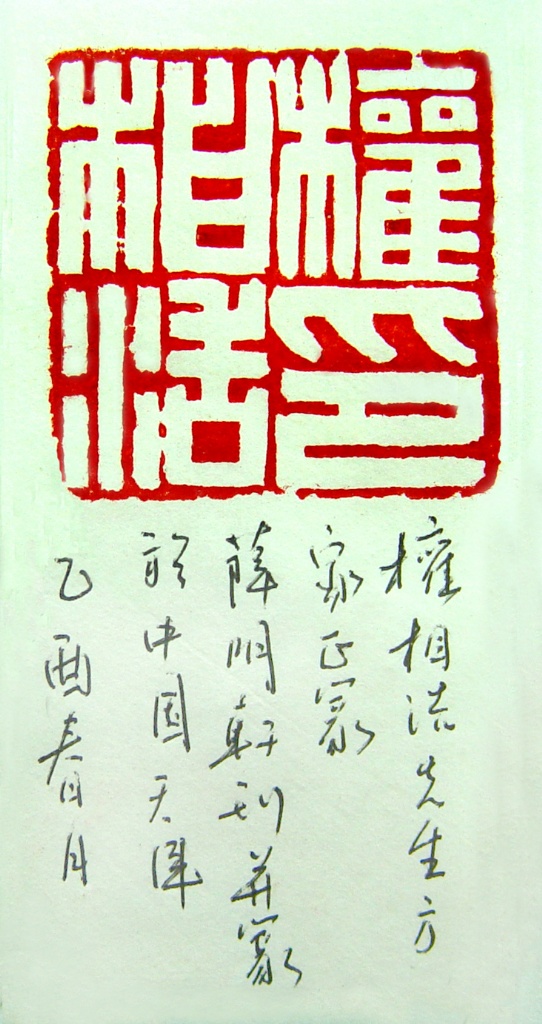 權印
相浩
權相浩先生方
家正篆
薛明軒刊并篆
於中国天津
乙酉春月